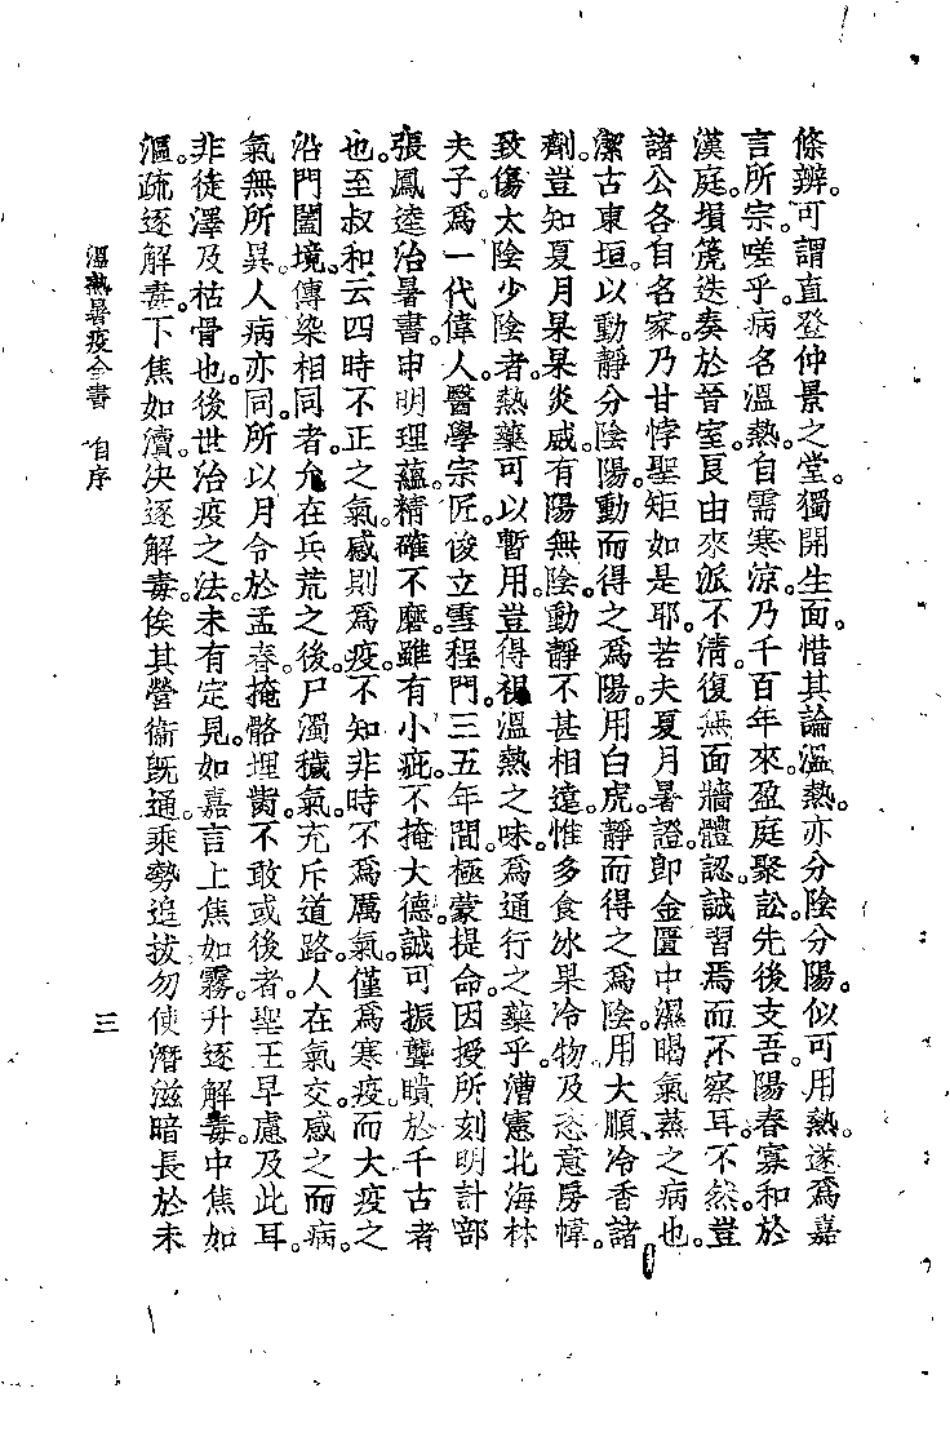 條辨。可謂直登仲景之堂。獨開生面。惜其論溫熱。亦分陰分陽。似可用熱。遂爲嘉
言所宗。嗟乎。病名溫熱。自需寒涼。乃千百年來。盈庭聚訟。先後支吾。陽春寡和於
漢庭。塤箎迭奏於晉室。良由來派不淸。復無面牆體認。誠習焉而不察耳。不然。豈
諸公各自名家。乃甘悖聖矩如是耶。若夫夏月暑證。卽金匱中濕暍氣蒸之病也。
潔古東垣。以動靜分陰陽。動而得之爲陽。用白虎。靜而得之爲陰。用大順、冷香諸
劑。豈知夏月杲杲炎威。有陽無陰。動靜不甚相遠。惟多食冰果冷物。及恣意房幃。
致傷太陰少陰者。熱藥可以暫用。豈得視溫熱之味。爲通行之藥乎。漕憲北海林
夫子。爲一代偉人。醫學宗匠。俊立雪程門。三五年間。極蒙提命。因授所刻明計部
張鳳逵治暑書。申明理蘊。精確不磨。雖有小疵。不掩大德。誠可振聾瞶於千古者
也。至叔和云四時不正之氣。感則爲疫。不知非時不爲厲氣。僅爲寒疫。而大疫之
沿門闔境。傳染相同者。允在兵荒之後。尸濁穢氣。充斥道路。人在氣交。感之而病。
氣無所異。人病亦同。所以月令於孟春。掩骼埋胔。不敢或後者。聖王早慮及此耳。
非徒澤及枯骨也。後世治疫之法。未有定見。如嘉言上焦如霧。升逐解毒。中焦如
漚。疏逐解毒。下焦如瀆。決逐解毒。俟其營衞旣通。乘勢追拔。勿使潛滋暗長於未
溫熱暑疫全書　自序
三